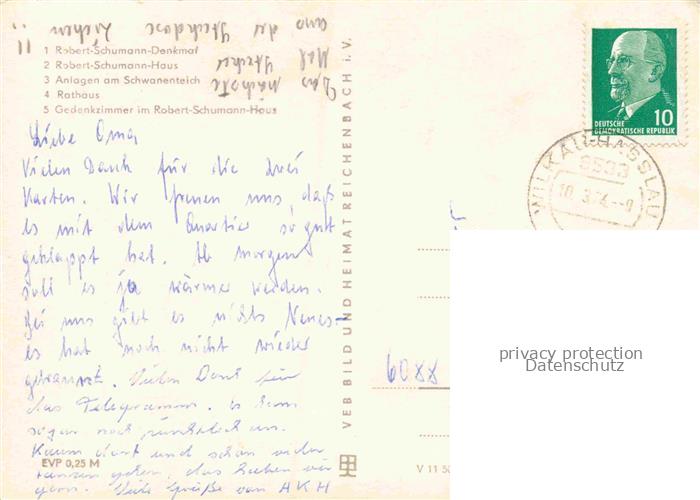 Das nächste
Mal Stecker
aus der Steckdose ziehen !!
1 Robert-Schumann-Denkmal
2 Robert-Schumann-Haus
3 Anlagen am Schwanenteich
4 Rathaus
5 Gedenkzimmer im Robert-Schumann-Haus
Liebe Oma
Vielen Dank für die zwei
Karten. Wir freuen uns, daß
es mit dem Quartier so gut
geklappt hat. Ab morgen
soll es ja wärmer werden.
Bei uns gibt es nichts Neues –
es hat noch nicht wieder
gebrannt. Vielen Dank für
das Telegramm. Es kam
sogar noch pünktlich an.
Kaum dort und schon wieder
tanzen gehen, das haben wir
gern. Viele Grüße von AKH
EVP 0,25 M
VEB BILD UND HEIMAT REICHENBACH i. V.
V 11 50
DEUTSCHE
DEMOKRATISCHE REPUBLIK
10
WILKAU-HASSLAU
9533
10.3.74.-9
6088
privacy protection
Datenschutz